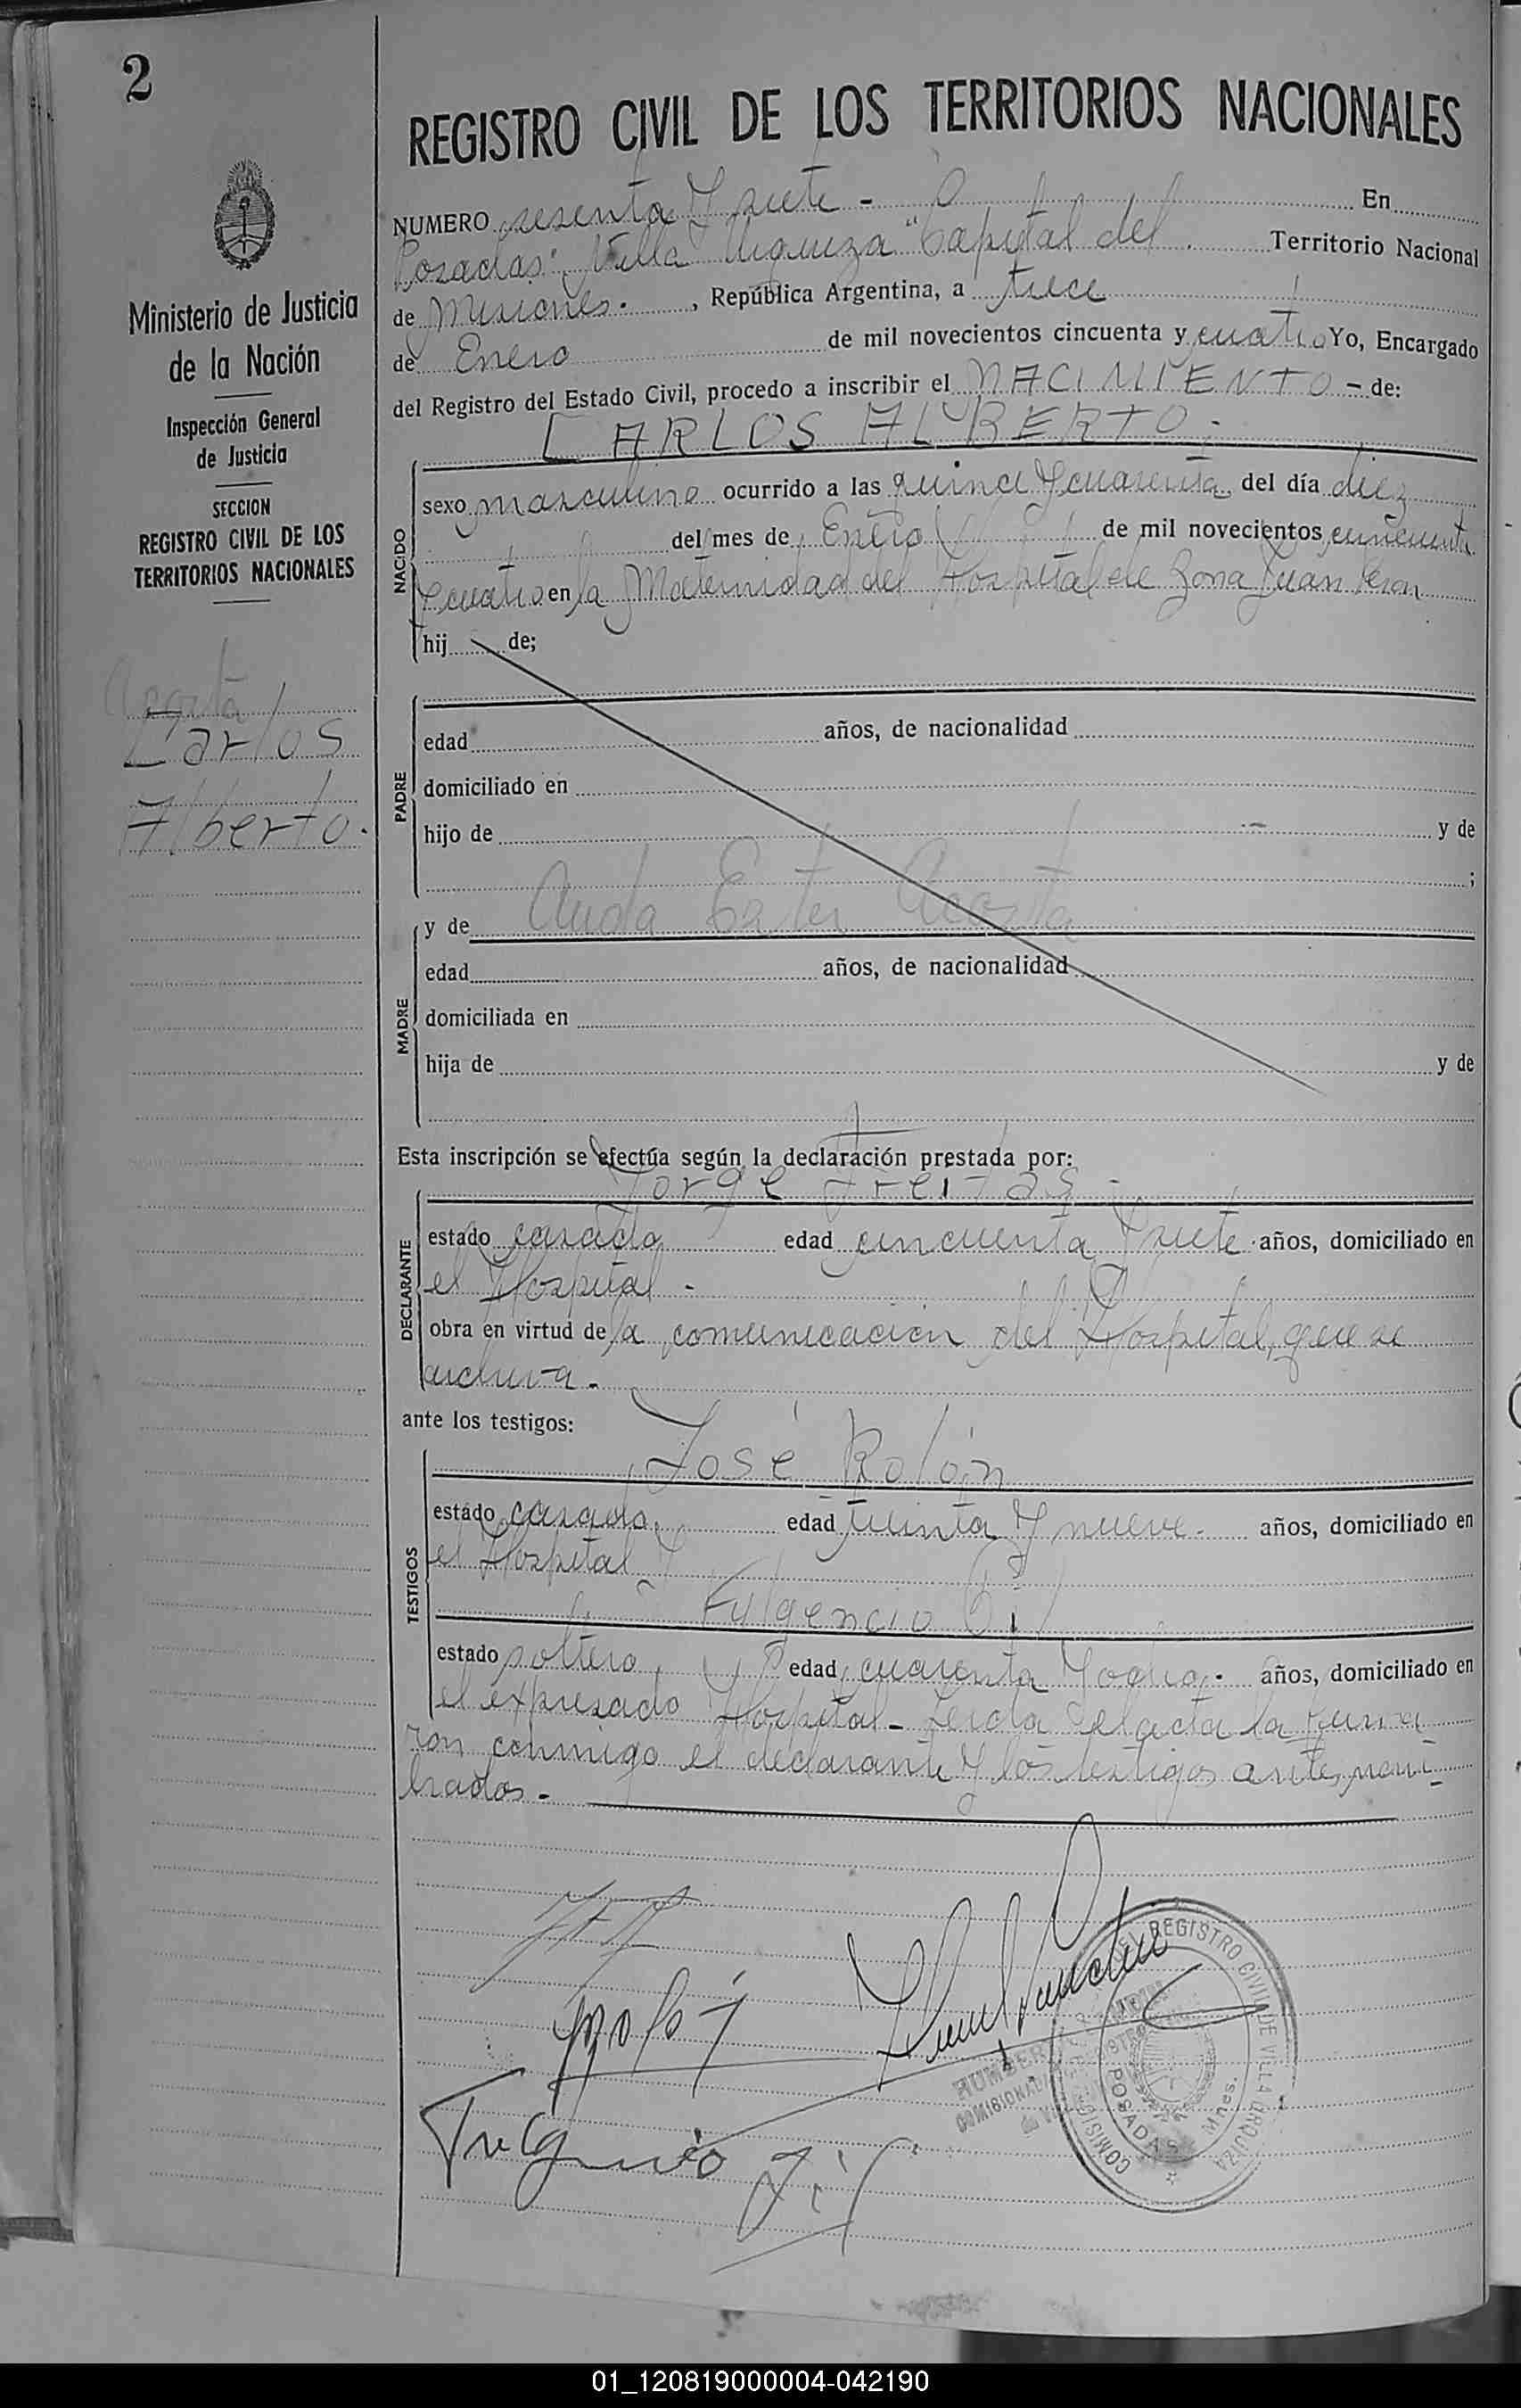 2
REGISTRO CIVIL DE LOS TERRITORIOS NACIONALES
Ministerio de Justicia
de la Nación
Inspección General
de Justicia
SECCION
REGISTRO CIVIL DE LOS
TERRITORIOS NACIONALES
Acosta
Carlos
Alberto.
NUMERO sesenta y siete - En
Posadas "Villa Urquiza" Capital del Territorio Nacional
de Misiones. , República Argentina, a trece
de Enero de mil novecientos cincuenta y cuatro Yo, Encargado
del Registro del Estado Civil, procedo a inscribir el NACIMIENTO - de:
CARLOS ALBERTO.
NACIDO
sexo masculino ocurrido a las quince y cuarenta del día diez
del mes de Enero de mil novecientos cincuenta
y cuatro en la Maternidad del Hospital de Zona Juan Peron
hij de;
PADRE
edad años, de nacionalidad
domiciliado en
hijo de y de
;
MADRE
y de Ester Acosta
edad años, de nacionalidad
domiciliada en
hija de y de
Esta inscripción se efectúa según la declaración prestada por:
DECLARANTE
Jorge Freitas -
estado casado edad cincuenta y siete años, domiciliado en
el Hospital -
obra en virtud de la comunicacion del Hospital, que se
archiva -
ante los testigos:
TESTIGOS
José Rolón
estado casado, edad treinta y nueve años, domiciliado en
el Hospital y
Fulgencio Gil
estado soltero, edad cuarenta y ocho. años, domiciliado en
el expresado Hospital - Leida el acta la firma
ron conmigo el declarante y los testigos antes nom
brados. -
Fulgencio Gil
REGISTRO CIVIL DE VILLA URQUIZA
POSADAS Mnes.
01_120819000004-042190